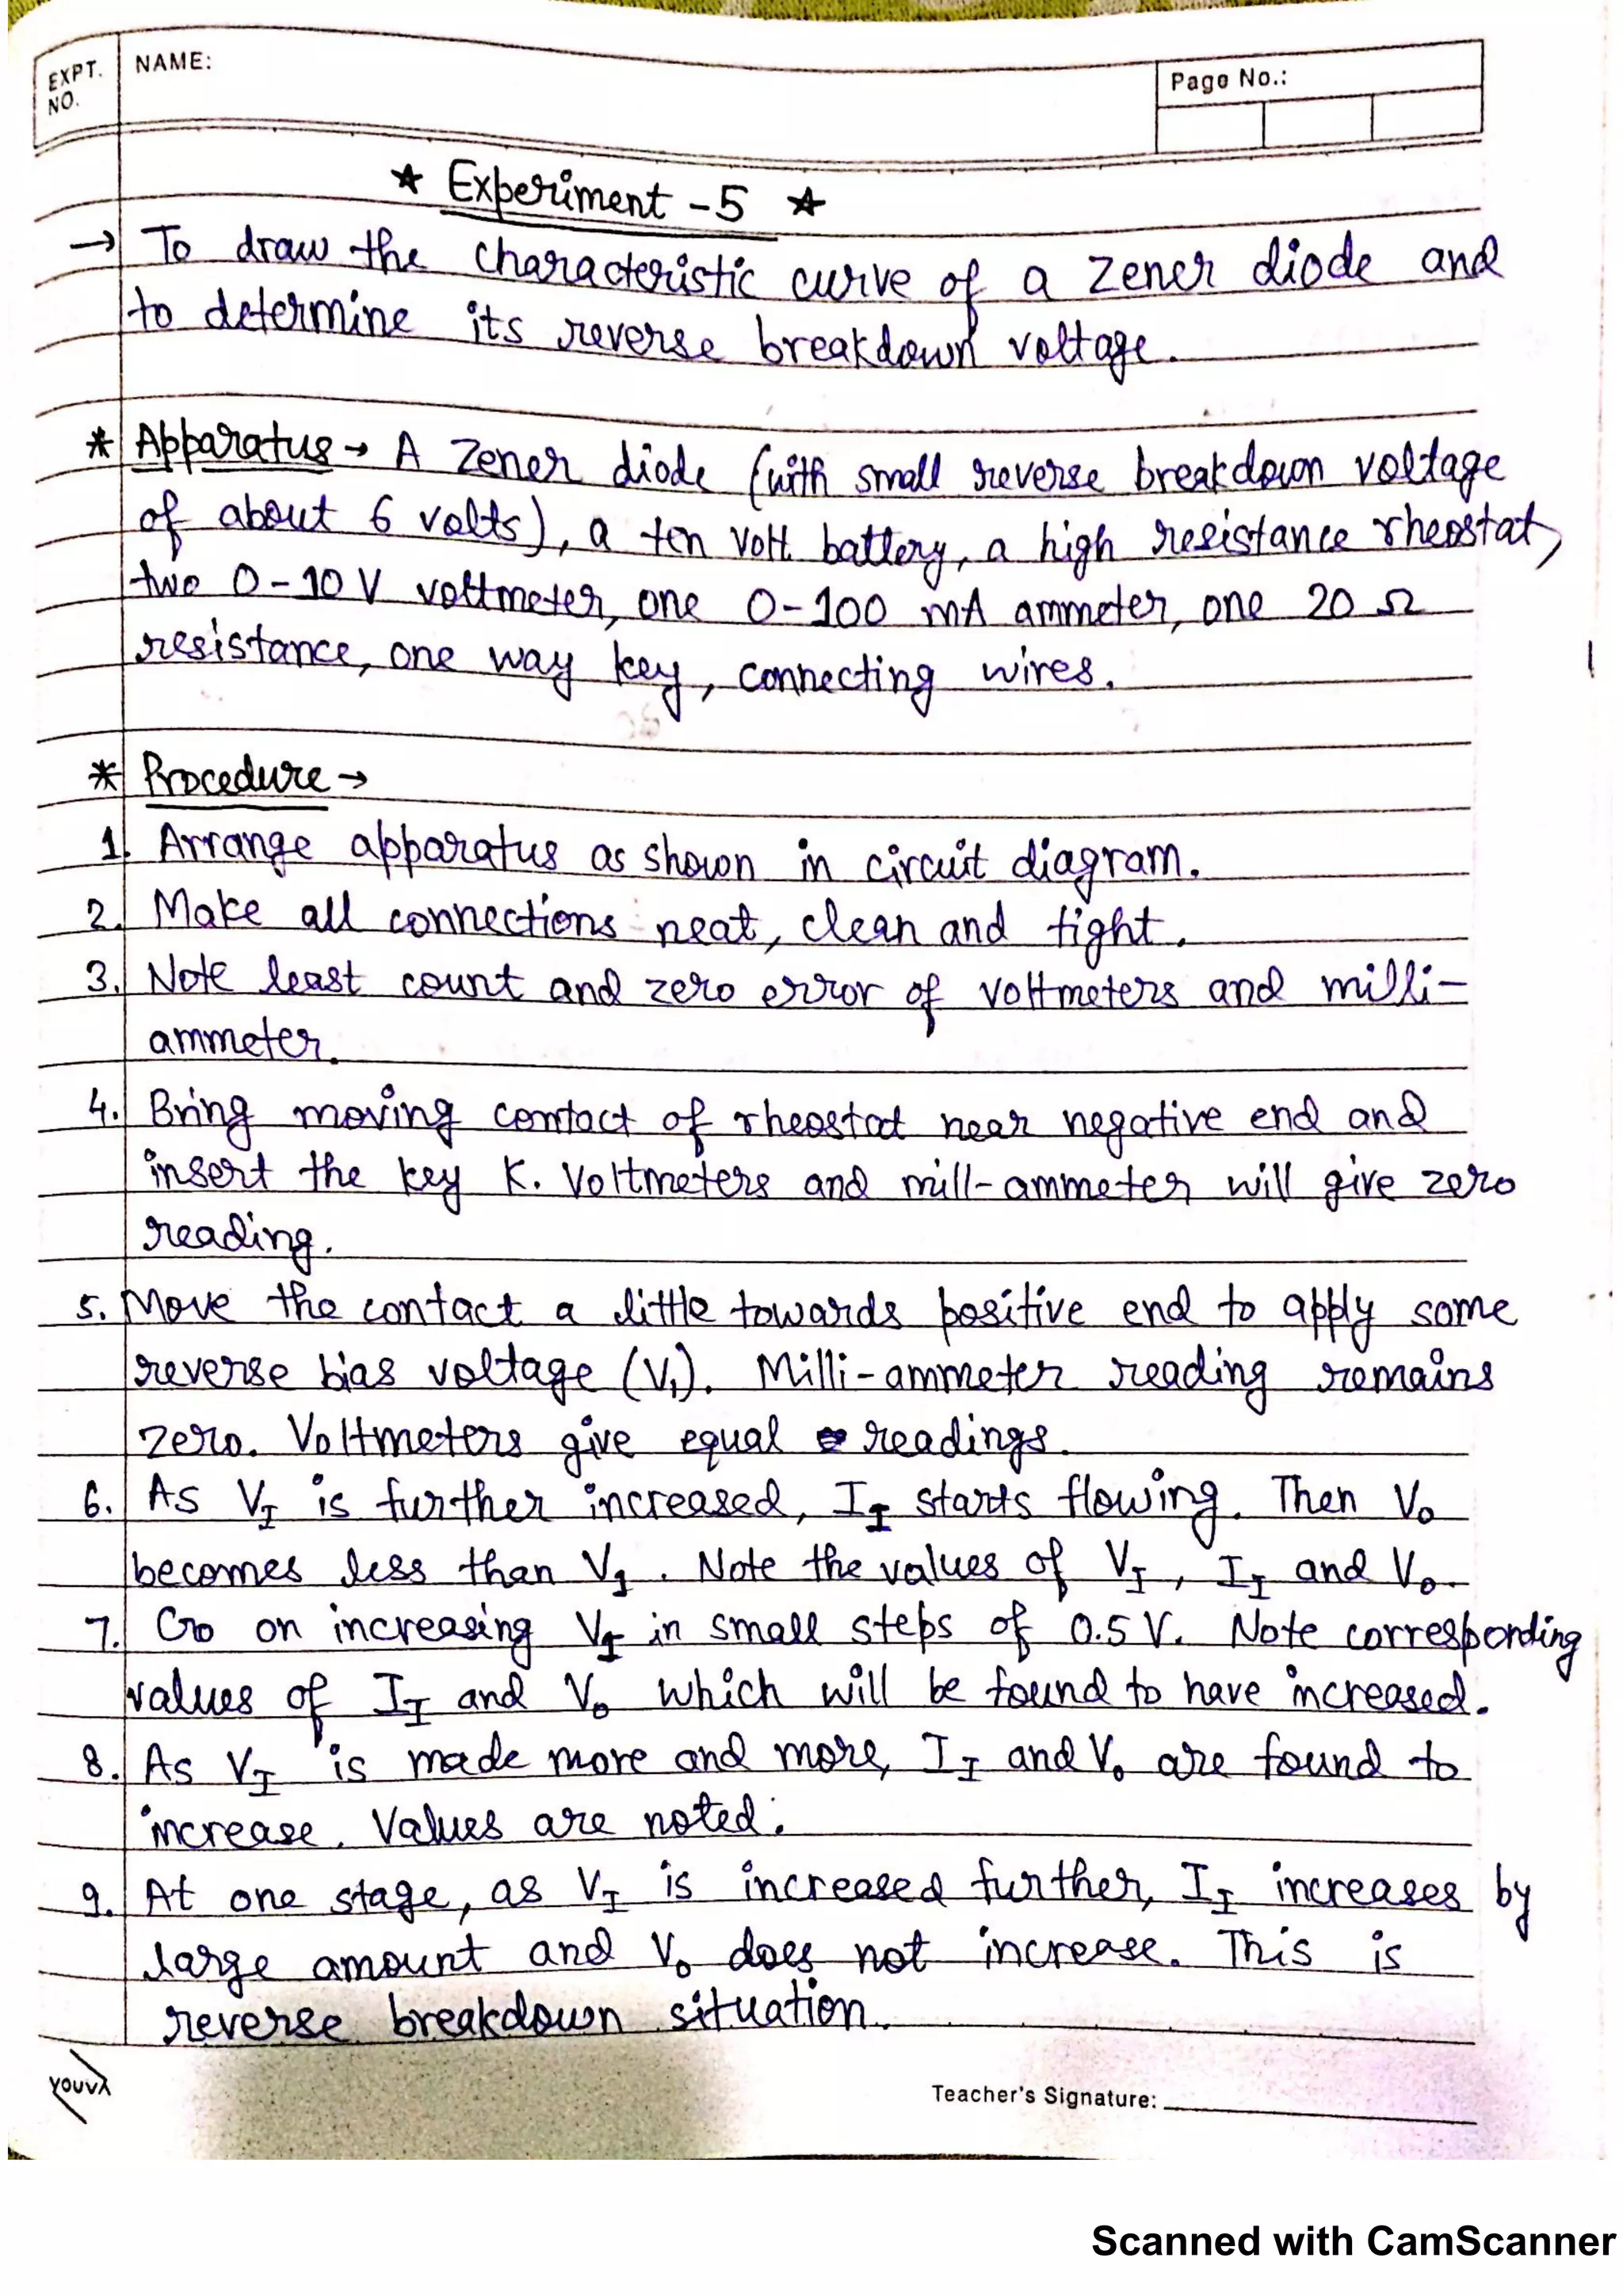 EXPT. NO.
NAME:
Page No.:
* Experiment -5 *
→ To draw the characteristic curve of a zener diode and
to determine its reverse breakdown voltage.
* Apparatus → A zener diode (with small reverse breakdown voltage
of about 6 volts), a ten volt battery, a high resistance rheostat,
two 0-10 V voltmeter, one 0-100 mA ammeter, one 20 Ω
resistance, one way key, connecting wires.
* Procedure →
1. Arrange apparatus as shown in circuit diagram.
2. Make all connections neat, clean and tight.
3. Note least count and zero error of voltmeters and milli-
ammeter.
4. Bring moving contact of rheostat near negative end and
insert the key K. Voltmeters and mill-ammeter will give zero
reading.
5. Move the contact a little towards positive end to apply some
reverse bias voltage (V₁). Milli-ammeter reading remains
zero. Voltmeters give equal readings.
6. As V_I is further increased, I_I starts flowing. Then V₀
becomes less than V_I. Note the values of V_I, I_I and V₀.
7. Go on increasing V_I in small steps of 0.5 V. Note corresponding
values of I_I and V₀ which will be found to have increased.
8. As V_I is made more and more, I_I and V₀ are found to
increase. Values are noted.
9. At one stage, as V_I is increased further, I_I increases by
large amount and V₀ does not increase. This is
reverse breakdown situation.
youva
Teacher's Signature:
Scanned with CamScanner